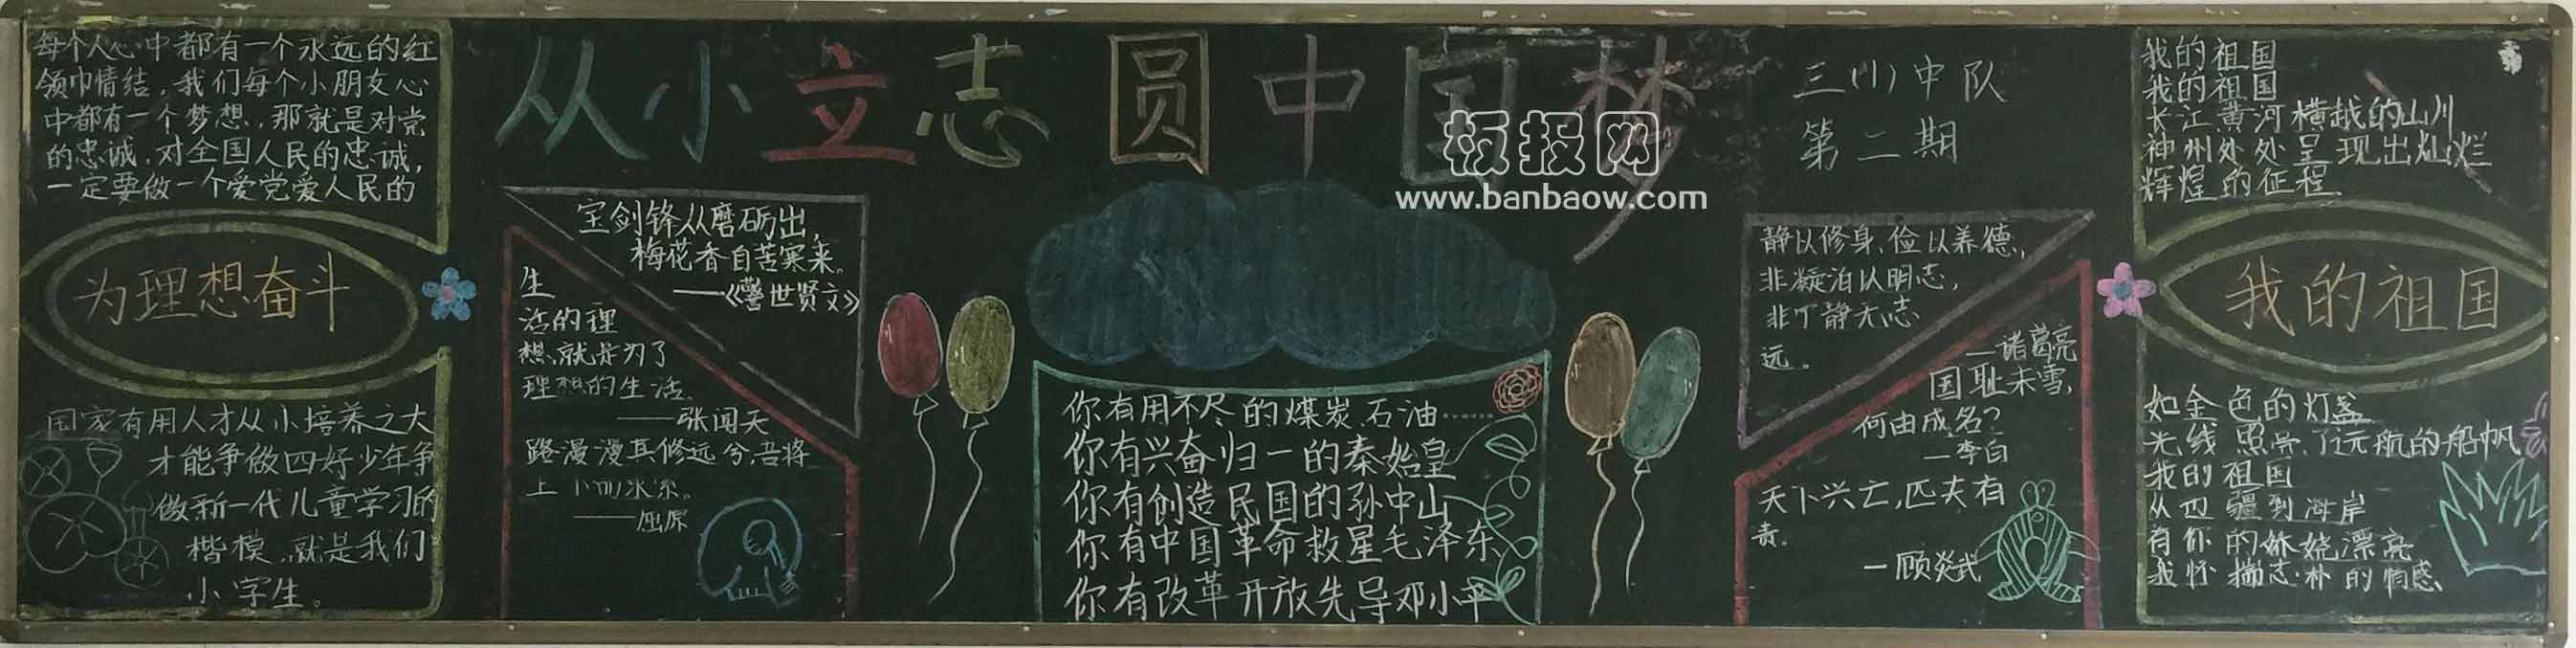 从小立志圆中国梦
三(1)中队
第二期
板报网
www.banbaow.com
每个人心中都有一个永远的红
领巾情结，我们每个小朋友心
中都有一个梦想，那就是对党
的忠诚，对全国人民的忠诚，
一定要做一个爱党爱人民的
为理想奋斗
国家有用人才从小培养之大
才能争做四好少年争
做新一代儿童学习的
楷模，就是我们
小学生。
宝剑锋从磨砺出，
梅花香自苦寒来。
——《警世贤文》
生
活的理
想，就是为了
理想的生活。
——张闻天
路漫漫其修远兮，吾将
上下而求索。
——屈原
你有用不尽的煤炭石油……
你有兴奋归一的秦始皇
你有创造民国的孙中山
你有中国革命救星毛泽东
你有改革开放先导邓小平
静以修身、俭以养德，
非凝泊以明志，
非宁静无志
远。
—诸葛亮
国耻未雪，
何由成名？
—李白
天下兴亡，匹夫有
责。
—顾炎武
我的祖国
我的祖国
长江黄河横越的山川
神州处处呈现出灿烂
辉煌的征程
我的祖国
如金色的灯盏
光线照亮了远航的船帆
我的祖国
从四疆到海岸
有你的娇娆漂亮
我怀揣志朴的情感